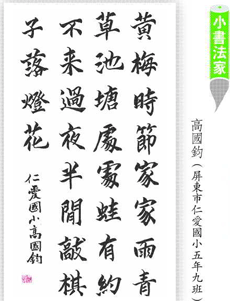 小書法家
高國鈞(屏東市仁愛國小五年九班)
黃梅時節家家雨青
草池塘處處蛙有約
不来過夜半閒敲棋
子落燈花
仁愛國小高國鈞